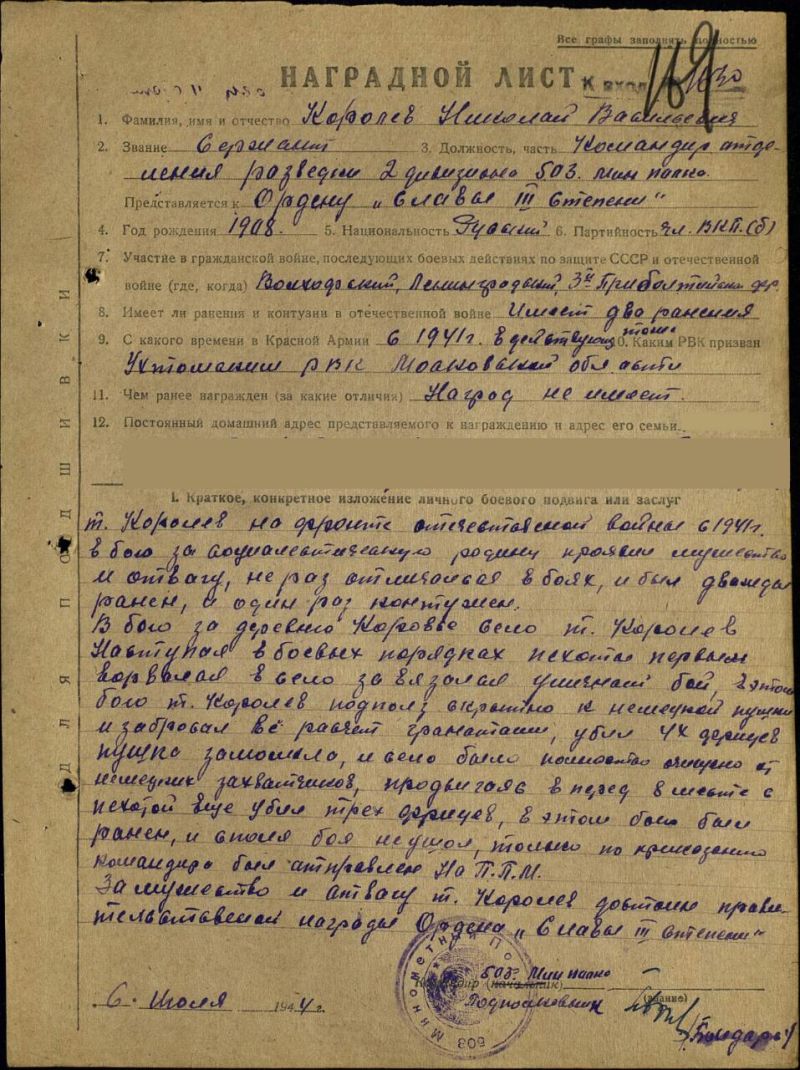 Все графы заполнять полностью
НАГРАДНОЙ ЛИСТ К вход 169 1630
1. Фамилия, имя и отчество Королев Николай Васильевич
2. Звание Сержант 3. Должность, часть Командир отде-
ления разведки 2 дивизиона 503. мин полка.
Представляется к Ордену „Славы III степени"
4. Год рождения 1908. 5. Национальность Руский 6. Партийность Чл. ВКП.(б)
7. Участие в гражданской войне, последующих боевых действиях по защите СССР и отечественной
войне (где, когда) Волховский, Ленинградский, 3й Прибалтийский фр.
8. Имеет ли ранения и контузии в отечественной войне Имеет два ранения
9. С какого времени в Красной Армии с 1941г. в действующ 10. Каким РВК призван
Ухтомским РВК Московской области
11. Чем ранее награжден (за какие отличия) Наград не имеет.
12. Постоянный домашний адрес представляемого к награждению и адрес его семьи
ДЛЯ ПОДШИВКИ
I. Краткое, конкретное изложение личного боевого подвига или заслуг
т. Королев на фронте отечественной войны с 1941г.
в бою за социалистическую родину проявил мужество
и отвагу, не раз отличался в боях, и был дважды
ранен, и один раз контужен.
В бою за деревню Коровье село т. Королев
Наступая в боевых порядках пехоты первым
ворвался в село завязался уличный бой, в этом
бою т. Королев подполз скрытно к немецкой пушки
и забросал всё расчет гранатами, убил 4х фрицев
пушка замолкла, и село было полностью очищено от
немецких захватчиков, продвигаясь в перед в месте с
пехотой еще убил трех фрицев, в этом бою был
ранен, и споля боя не ушол, только по приказанию
командира был отправлен На П.П.М.
За мужество и отвагу т. Королев достоин прави-
тельственной награды Ордена „Славы III степени"
503. Мин полка
Командир (начальник)
Подполковник (звание)
6. Июля 1944г.
Бондарь
МИНОМЕТНЫЙ ПО 503